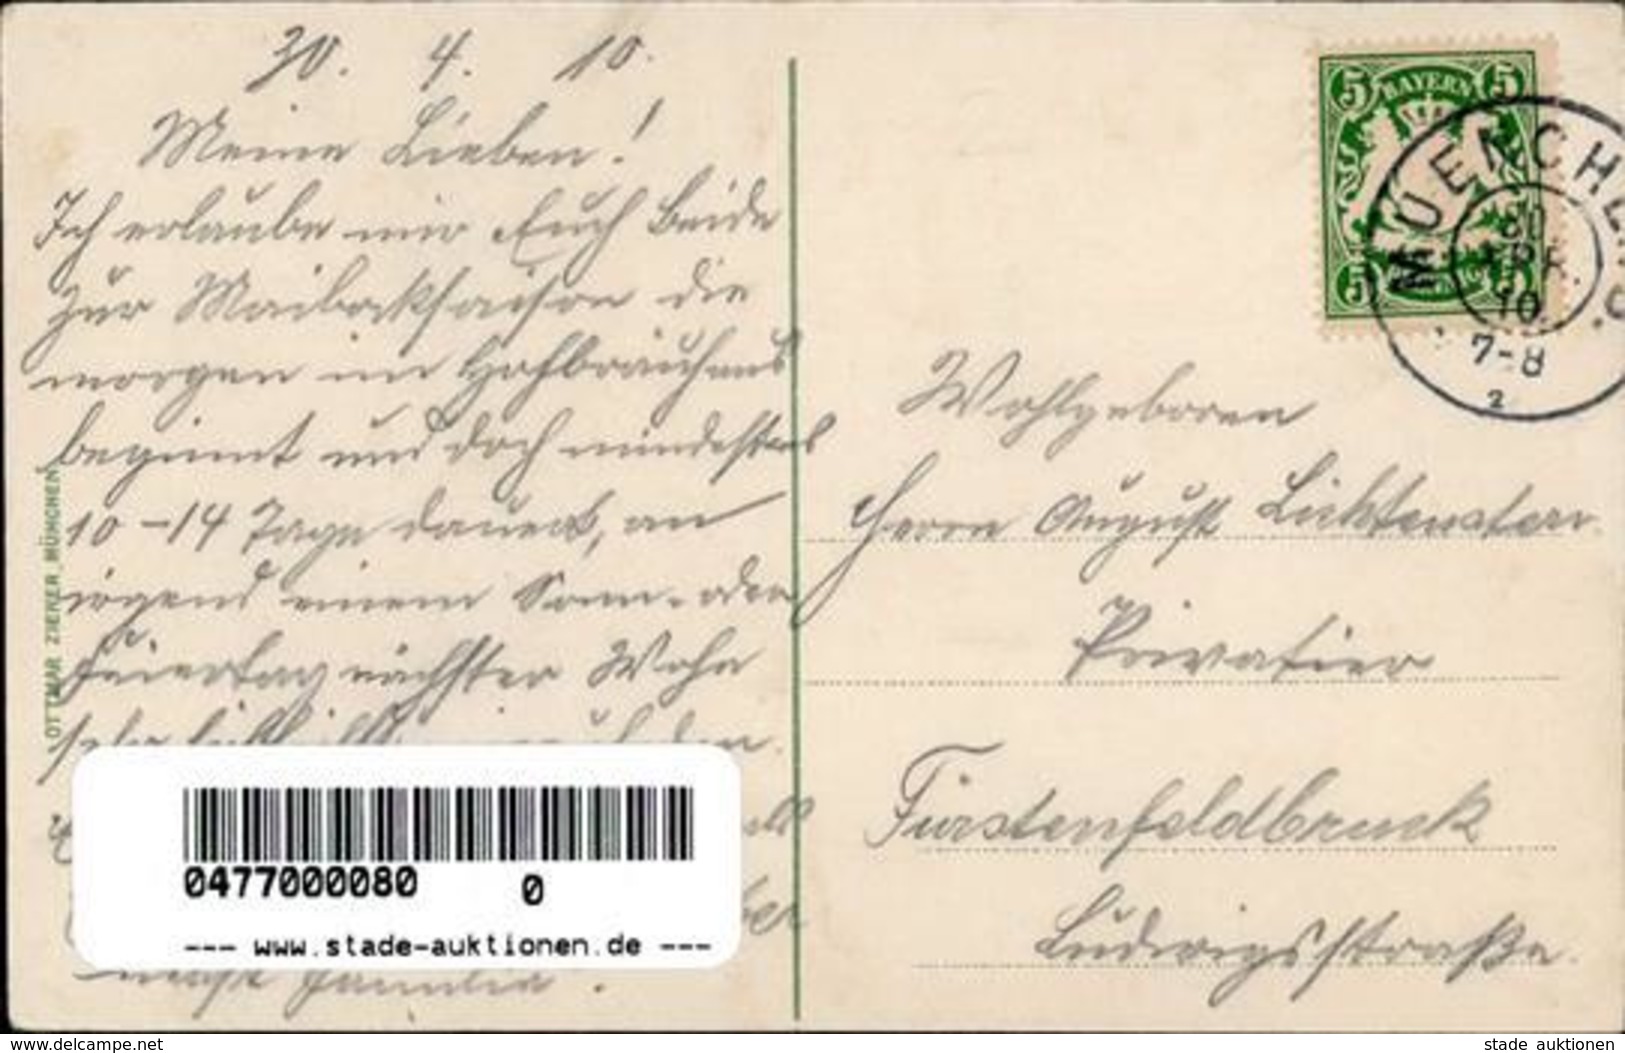 30. 4. 10.
Meine Lieben!
Ich erlaube mir Euch Beide
zur Maibocksaison die
morgen im Hofbräuhaus
beginnt und doch mindestens
10-14 Tage dauert, an
irgend einem Sonn- oder
Feiertag nächster Woche
sehr
nebst Familie.
OTTMAR ZIEHER, MÜNCHEN
5 BAYERN 5
5
MUENCHEN
30
APR.
10
7-8
2
Wohlgeboren
Herrn August Lichtenstern
Privatier
Fürstenfeldbruck
Ludwigsstraße.
0477000080 0
--- www.stade-auktionen.de ---
www.delcampe.net
stade auktionen